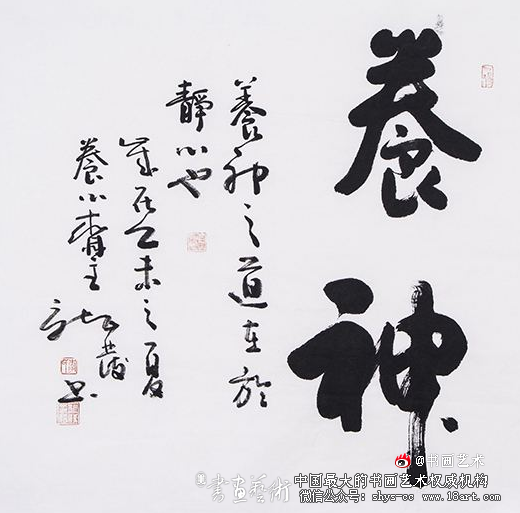 養神
養神之道在於
靜心也
歲在乙未之夏
養心齋主
書
@书画艺术
書画藝術
中国最大的书画艺术权威机构
微信公众号: shys-cc www.18art.com